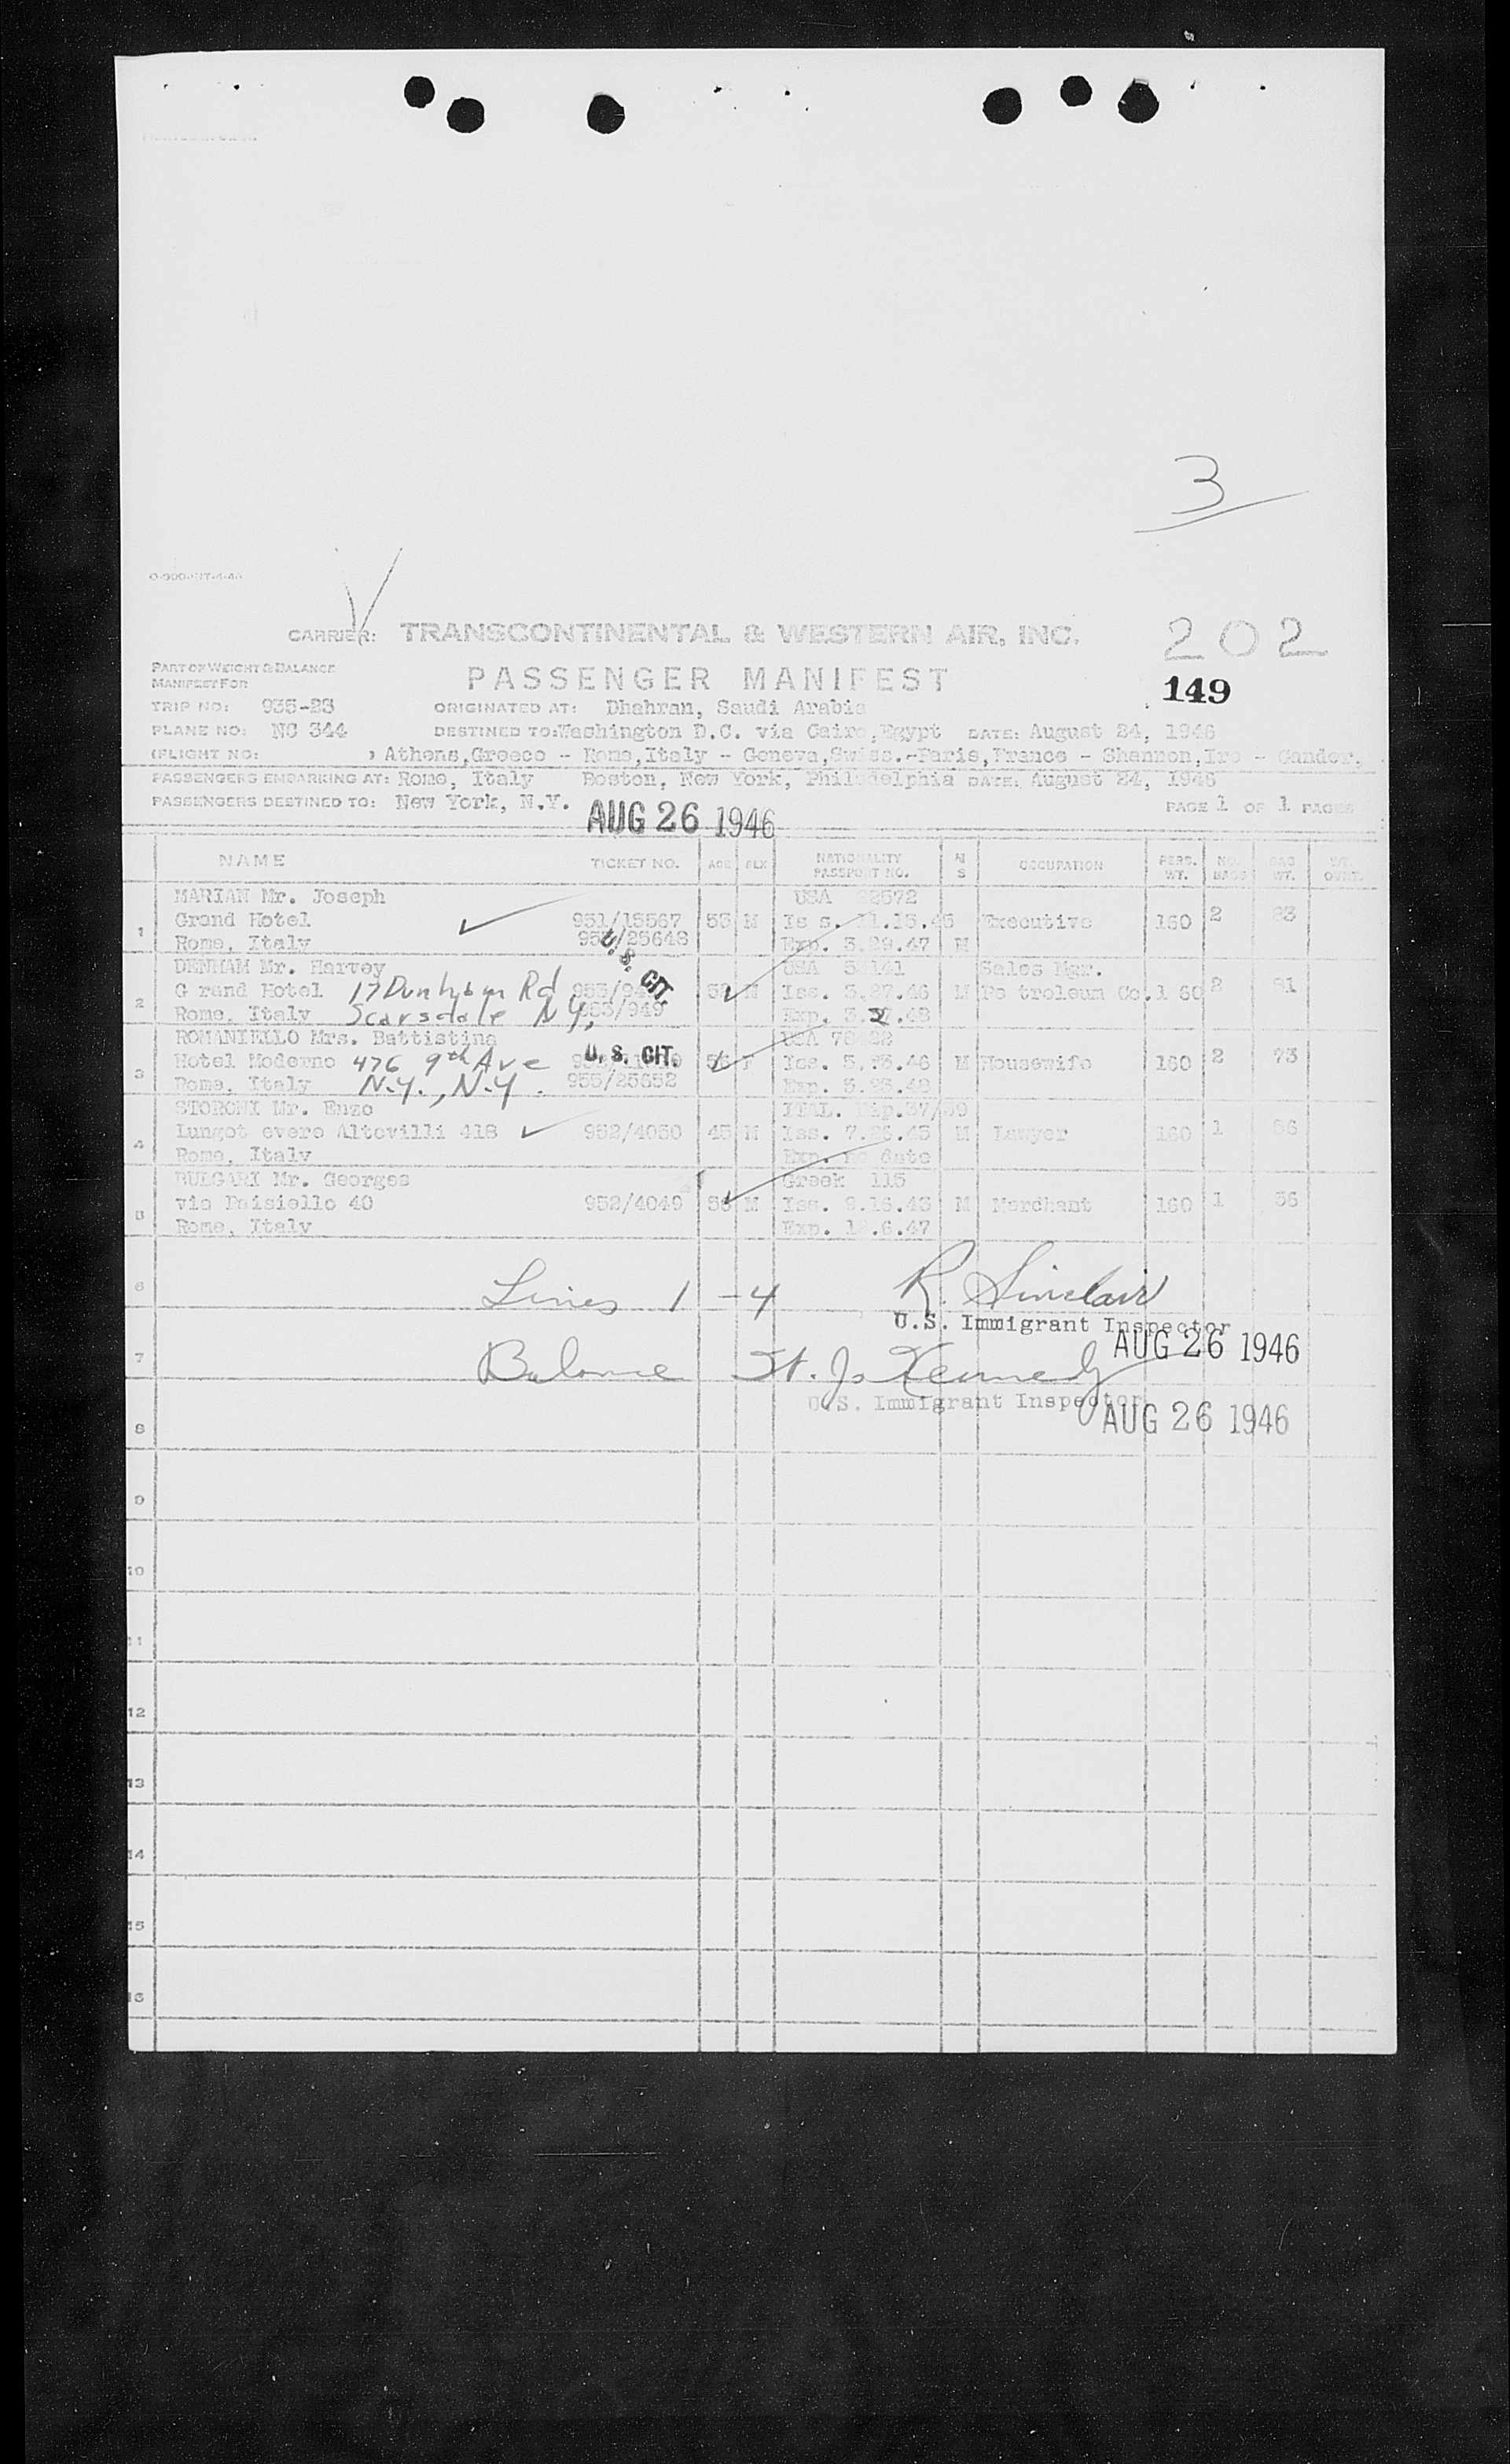 3
CARRIER: TRANSCONTINENTAL & WESTERN AIR, INC. 202
PART OF WEIGHT & BALANCE
MANIFEST FOR
PASSENGER MANIFEST 149
TRIP NO: 935-23 ORIGINATED AT: Dhahran, Saudi Arabia
PLANE NO: NC 344 DESTINED TO: Washington D.C. via Cairo, Egypt DATE: August 24, 1946
(FLIGHT NO: ) Athens, Greece - Rome, Italy - Geneva, Swiss.-Paris, France - Shannon, Ire - Gander,
PASSENGERS EMBARKING AT: Rome, Italy Boston, New York, Philadelphia DATE: August 24, 1946
PASSENGERS DESTINED TO: New York, N.Y. AUG 26 1946 PAGE 1 OF 1 PAGES
NAME TICKET NO. AGE SEX NATIONALITY PASSPORT NO. M S OCCUPATION PERS. WT. NO. BAGS BAG WT.
MARIAN Mr. Joseph USA
1 Grand Hotel 951/15567 53 M Executive 160 2 83
Rome, Italy Exp. 3.29.47 M
U.S. CIT.
DENHAM Mr. Harvey USA Sales Mgr.
2 G rand Hotel 17 Dunham Rd M Iss. 3.27.46 M Pe troleum Co. 1 60 2 81
Rome, Italy Scarsdale N.Y.
ROMANIELLO Mrs. Battistina USA
3 Hotel Moderno 476 9th Ave U.S. CIT. F M Housewife 160 2 73
Rome, Italy N.Y., N.Y. 955/25652
STORONI Mr. Enzo ITAL.
4 Lungot evere Altovilli 41B 952/4050 45 M M Lawyer 160 1 56
Rome, Italy Exp. no date
BULGARI Mr. Georges Greek 115
5 via Paisiello 40 952/4049 56 M M Merchant 160 1 56
Rome, Italy
6 Lines 1 - 4 R. Sinclair
U.S. Immigrant Inspector
AUG 26 1946
7 Balance St. J. Kennedy
U.S. Immigrant Inspector
AUG 26 1946
8
9
10
11
12
13
14
15
16